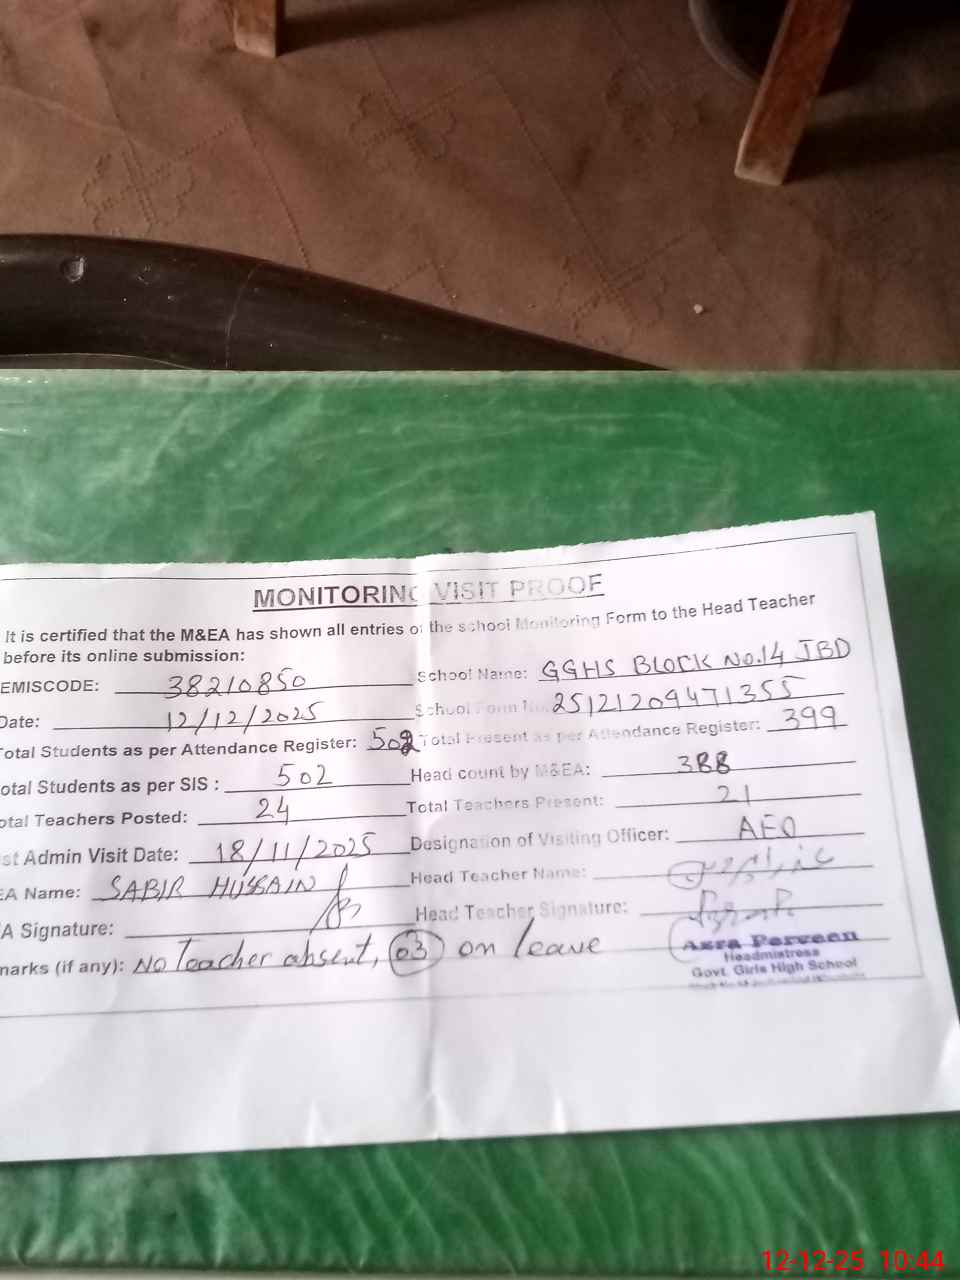 MONITORING VISIT PROOF
It is certified that the M&EA has shown all entries of the school Monitoring Form to the Head Teacher
before its online submission:
EMISCODE: 38210850 School Name: GGHS BLOCK No.14 JBD
Date: 12/12/2025 School Form No. 25121209471355
Total Students as per Attendance Register: 502 Total Present as per Attendance Register: 399
otal Students as per SIS : 502 Head count by M&EA: 388
otal Teachers Posted: 24 Total Teachers Present: 21
st Admin Visit Date: 18/11/2025 Designation of Visiting Officer: AEO
EA Name: SABIR HUSSAIN Head Teacher Name:
A Signature: Head Teacher Signature:
marks (if any): No Teacher absent, 03 on leave
Azra Perveen
Headmistress
Govt. Girls High School
12-12-25 10:44